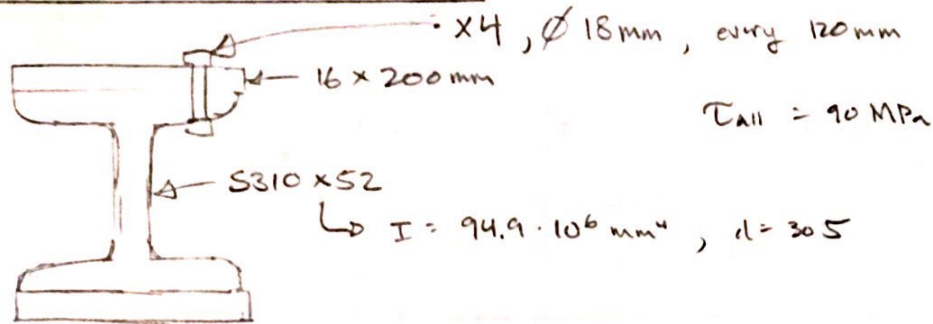 x4, Ø 18mm, every 120mm
16 x 200mm
τall = 90 MPa
S310 x 52
I = 94.9 · 10⁶ mm⁴, d = 305